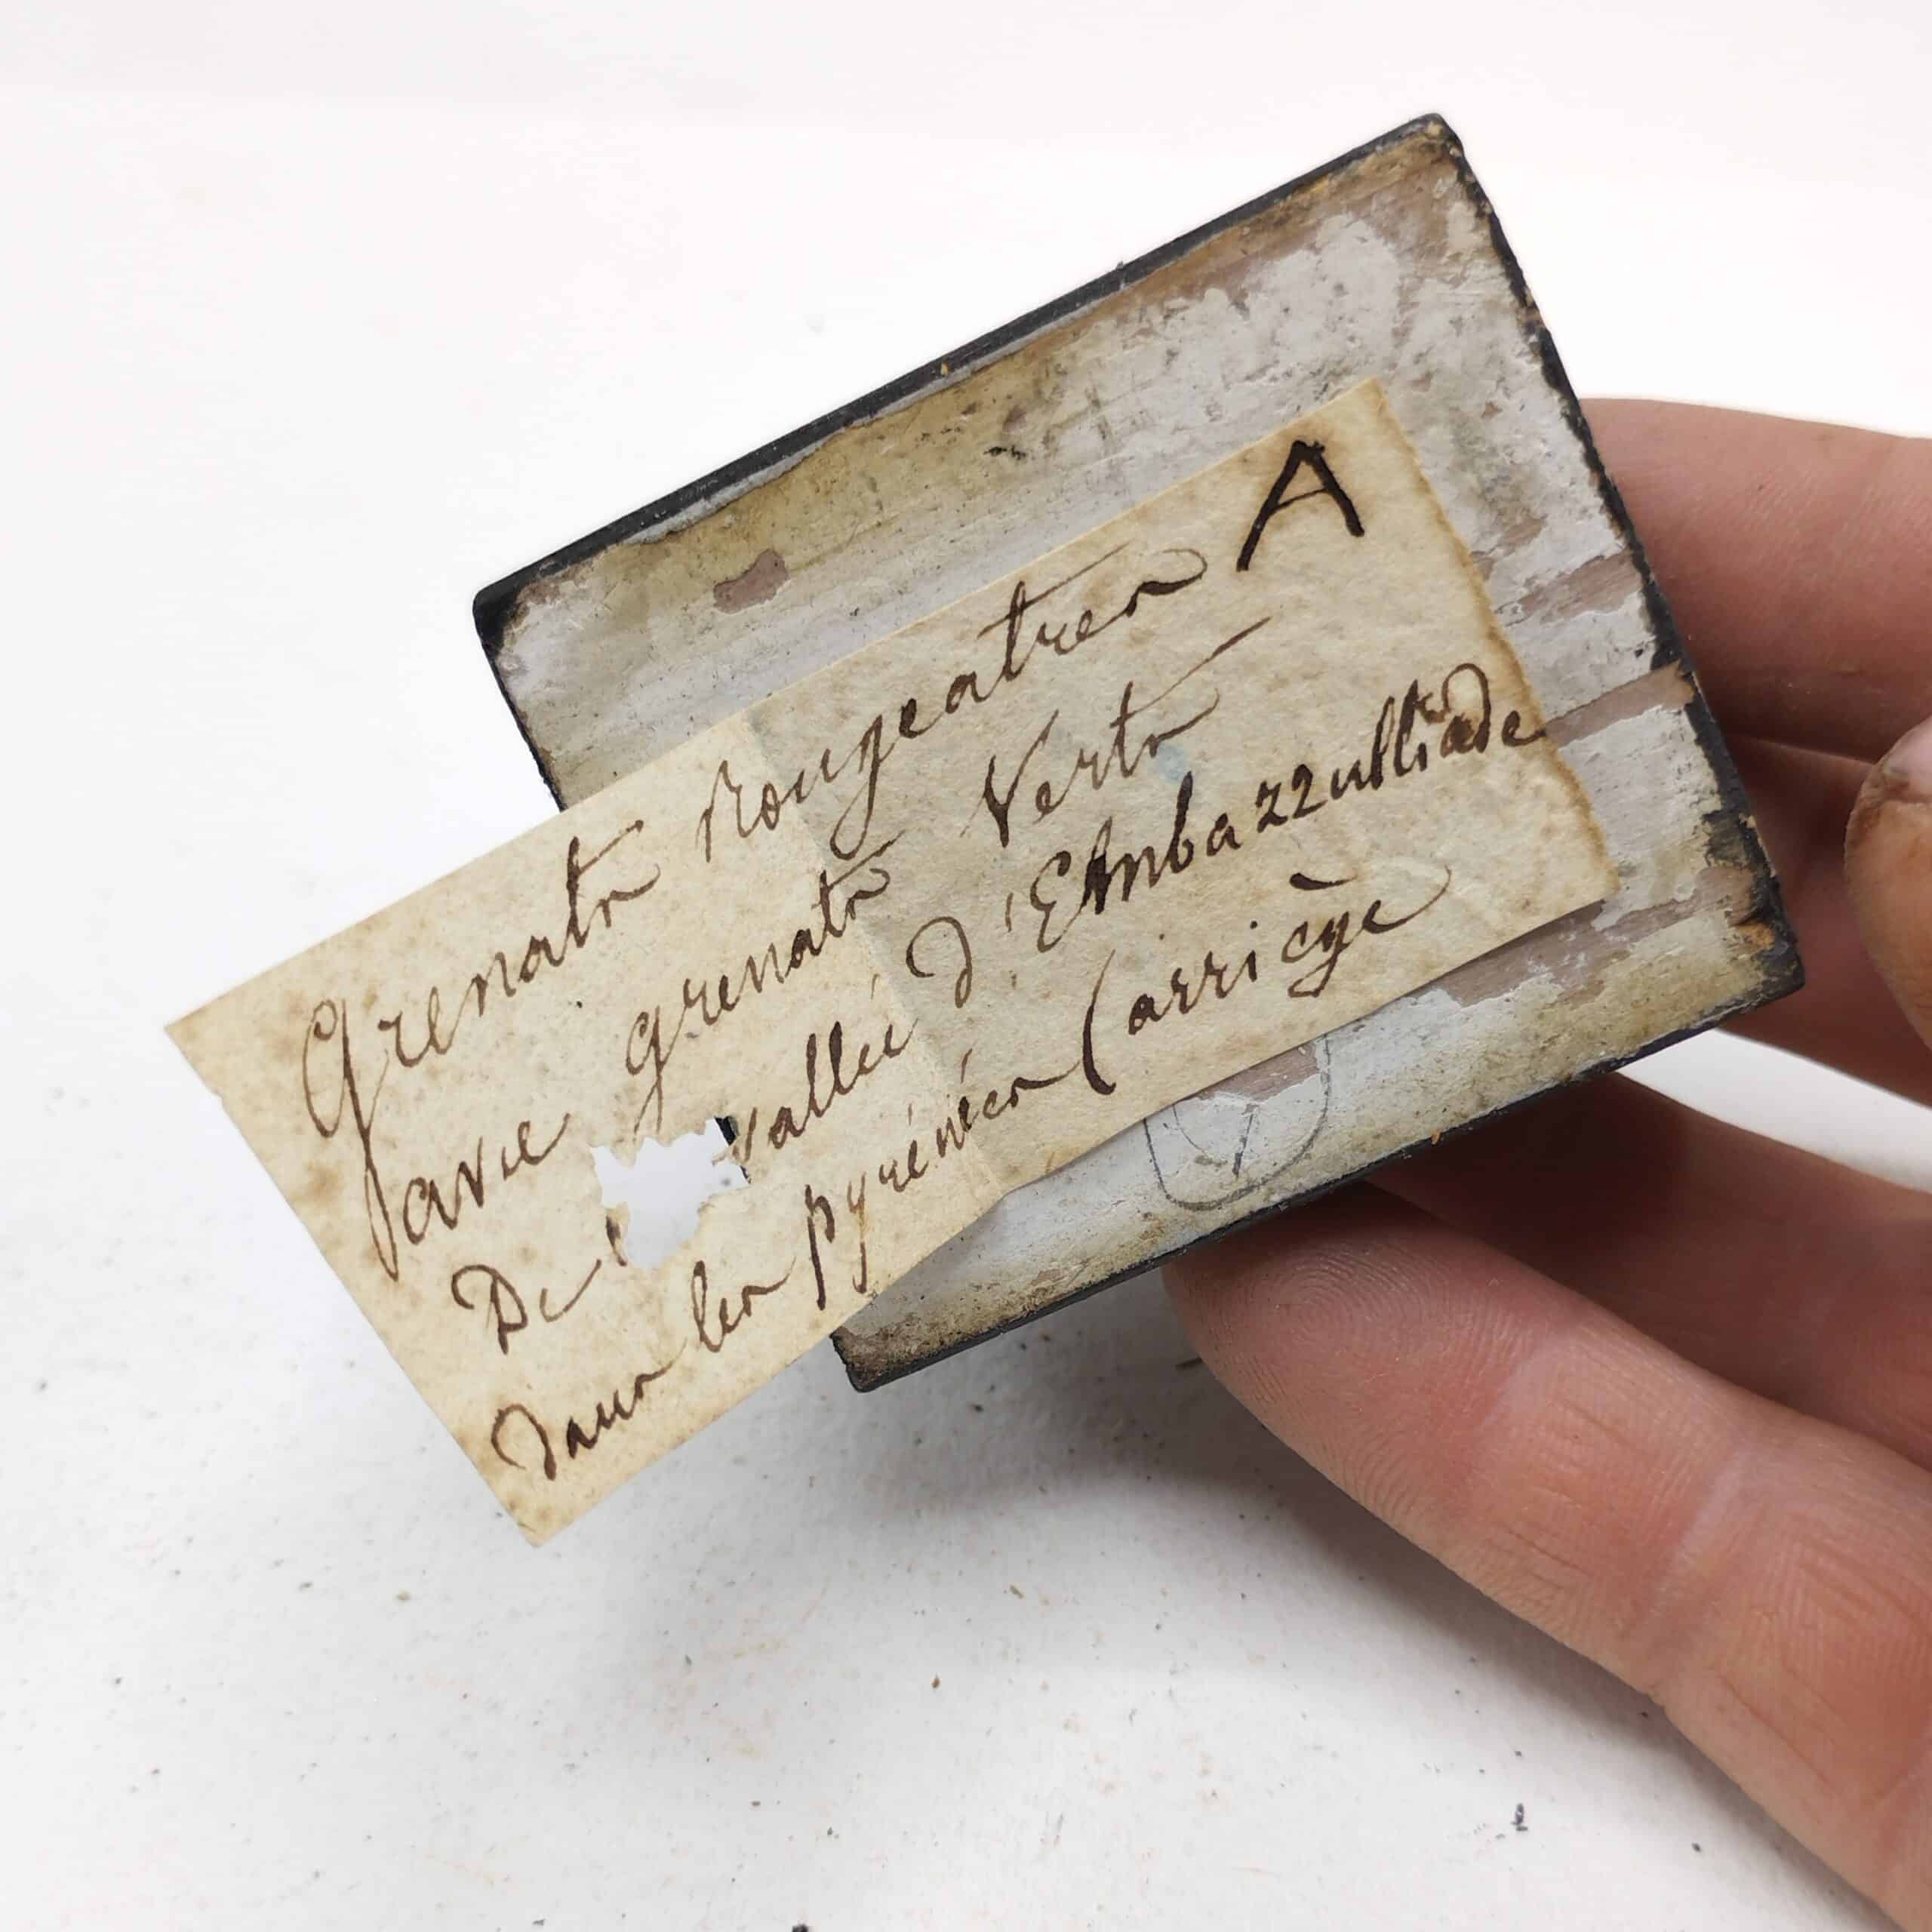 A
Grenats Rougeatres
avec grenats Verts
De l vallée d'EAmbazzulliade
dans les pyrénées (arriège